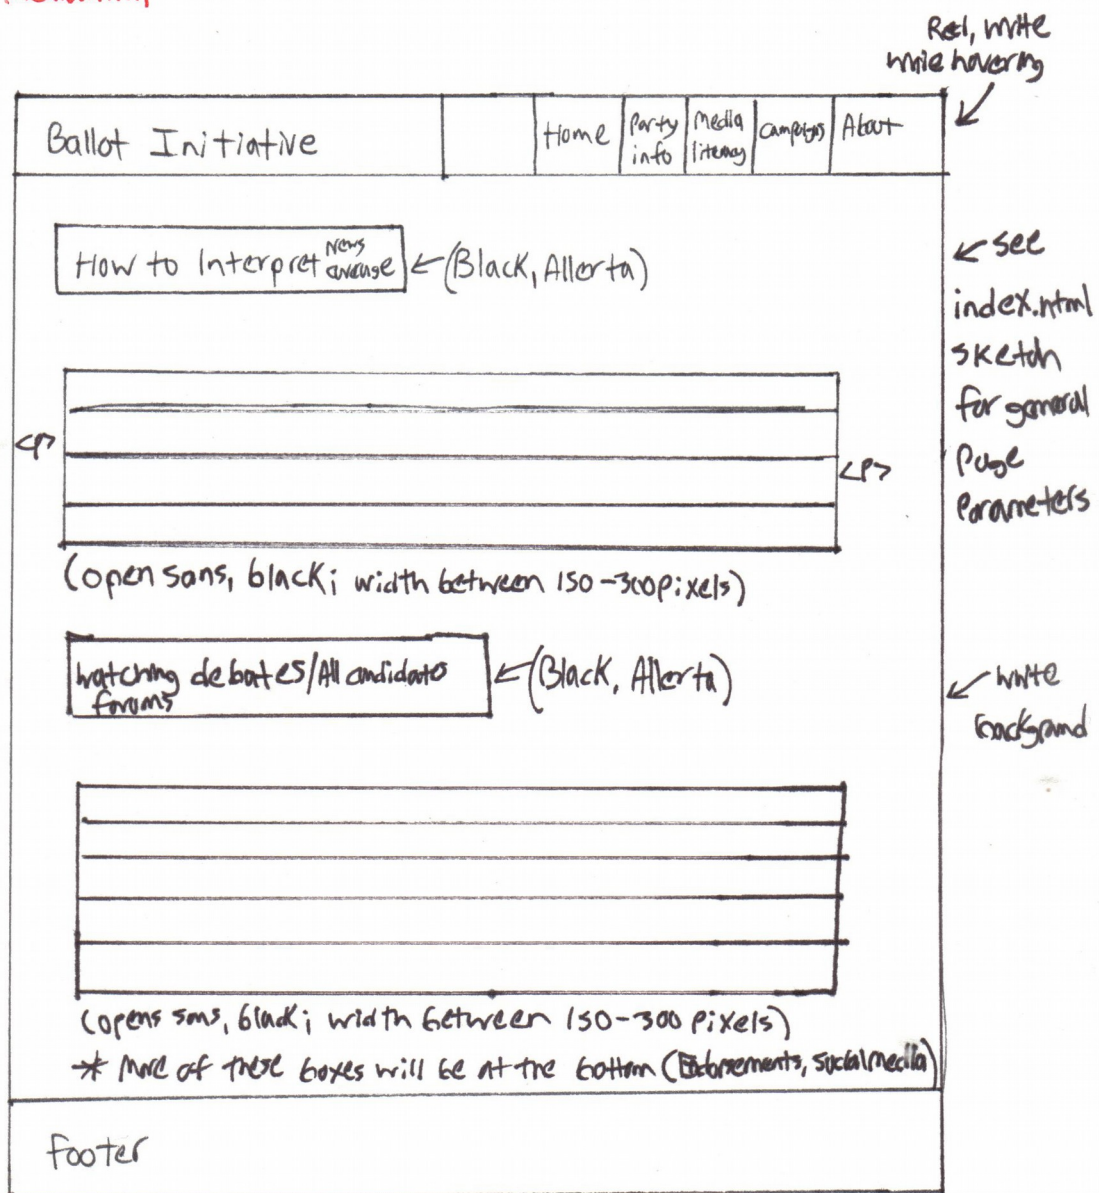 Red, white
while hovering
Ballot Initiative
Home
Party
info
Media
literacy
Campaigns
About
How to Interpret News
coverage
(Black, Allerta)
see
index.html
sketch
for general
page
parameters
<P>
<P>
(open sans, black; width between 150-300 pixels)
watching debates/All candidates
forums
(Black, Allerta)
white
background
(opens sans, black; width between 150-300 pixels)
* More of these boxes will be at the bottom (Endorsements, social media)
Footer